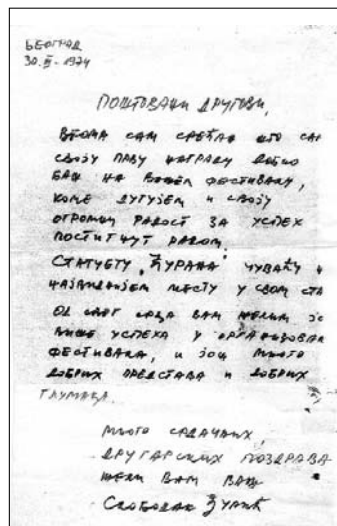 БЕОГРАД
30. III - 1974
ПОШТОВАНИ ДРУГОВИ,
ВЕОМА САМ СРЕЋАН ШТО САМ
СВОЈУ ПРВУ НАГРАДУ ДОБИО
БАШ НА ВАШЕМ ФЕСТИВАЛУ,
КОМЕ ДУГУЈЕМ И СВОЈУ
ОГРОМНУ РАДОСТ ЗА УСПЕХ
ПОСТИГНУТ РАДОМ.
СТАТУЕТУ „ЋУРАНА" ЧУВАЋУ
НАЈВИДНИЈЕМ МЕСТУ У СВОМ СТА
ОД СВОГ СРЦА ВАМ ЖЕЛИМ ЈО
ВИШЕ УСПЕХА У ОРГАНИЗОВАЊ
ФЕСТИВАЛА, И ЈОШ МНОГО
ДОБРИХ ПРЕДСТАВА И ДОБРИХ
ГЛУМАЦА.
МНОГО СРДАЧНИХ,
ДРУГАРСКИХ ПОЗДРАВА
ЖЕЛИ ВАМ ВАШ
СЛОБОДАН ЂУРИЋ